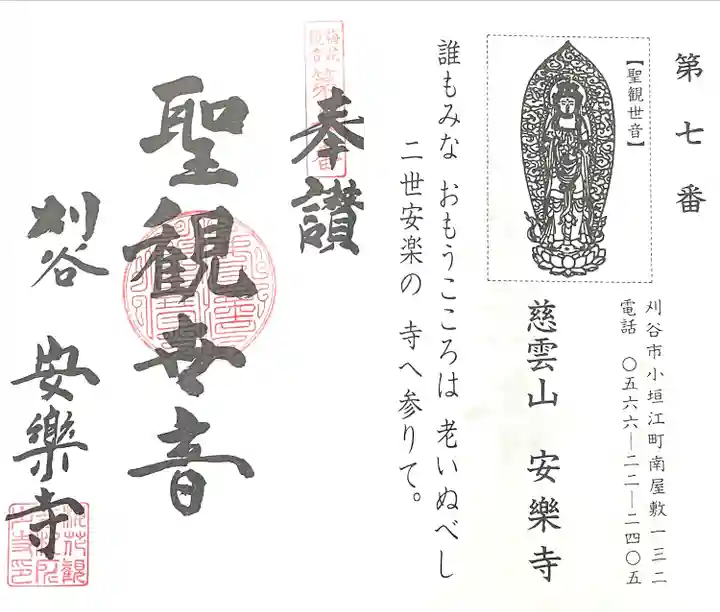 第七番
刈谷市小垣江町南屋敷一三二
電話 〇五六六―二二―二四〇五
【聖観世音】
慈雲山 安樂寺
誰もみな おもうこころは 老いぬべし
二世安楽の 寺へ参りて。
奉讃
聖観世音
刈谷 安樂寺